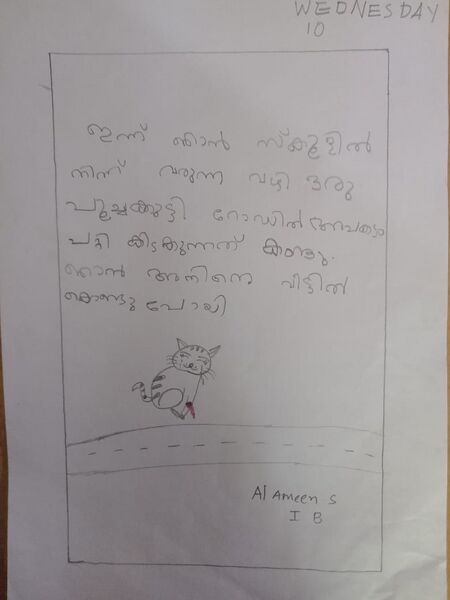 WEDNESDAY
10
ഇന്ന് ഞാൻ സ്കൂളിൽ
നിന്ന് വരുന്ന വഴി ഒരു
പൂച്ചക്കുട്ടി റോഡിൽ അപകടം
പറ്റി കിടക്കുന്നത് കണ്ടു.
ഞാൻ അതിനെ വീട്ടിൽ
കൊണ്ടു പോയി
Al Ameen S
I B